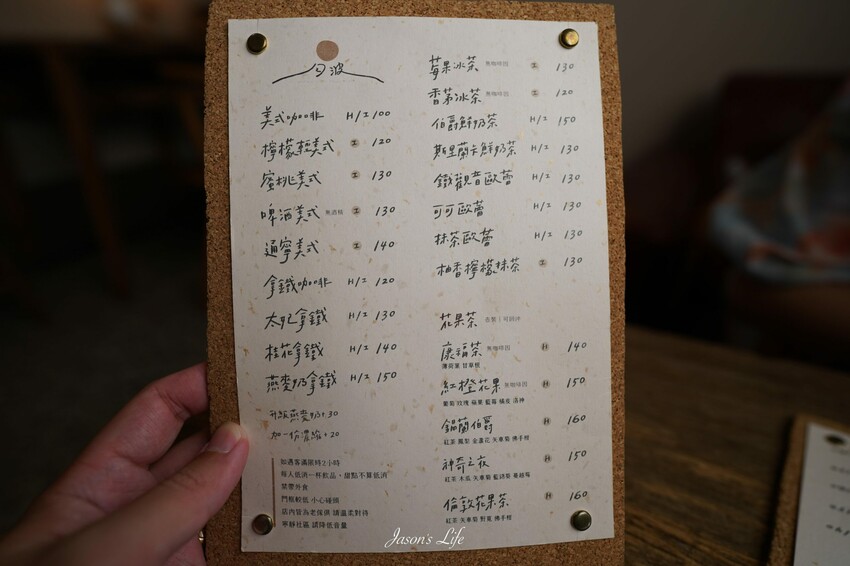 勻波
美式咖啡 H/I 100
檸檬輕美式 I 120
蜜桃美式 I 130
啤酒美式 無酒精 I 130
通寧美式 I 140
拿鐵咖啡 H/I 120
太妃拿鐵 H/I 130
桂花拿鐵 H/I 140
燕麥奶拿鐵 H/I 150
升級燕麥奶+30
加一份濃縮+20
如遇客滿限時2小時
每人低消一杯飲品、甜點不算低消
禁帶外食
門框較低 小心碰頭
店內皆為老傢俱 請溫柔對待
寧靜社區 請降低音量
莓果冰茶 無咖啡因 I 130
香茅冰茶 無咖啡因 I 120
伯爵鮮奶茶 H/I 150
斯里蘭卡鮮奶茶 H/I 130
鐵觀音歐蕾 H/I 130
可可歐蕾 H/I 130
抹茶歐蕾 H/I 130
柚香檸檬抹茶 I 130
花果茶 壺裝｜可回沖
康福茶 無咖啡因 H 140
薄荷葉 甘草根
紅橙花果 無咖啡因 H 150
蘋果 玫瑰 莓果 藍莓 橘皮 洛神
錫蘭伯爵 H 160
紅茶 鳳梨 金盞花 矢車菊 佛手柑
神奇之夜 H 150
紅茶 木瓜 矢車菊 藍錦葵 蔓越莓
倫敦花果茶 H 160
紅茶 矢車菊 野莓 佛手柑
Jason's Life